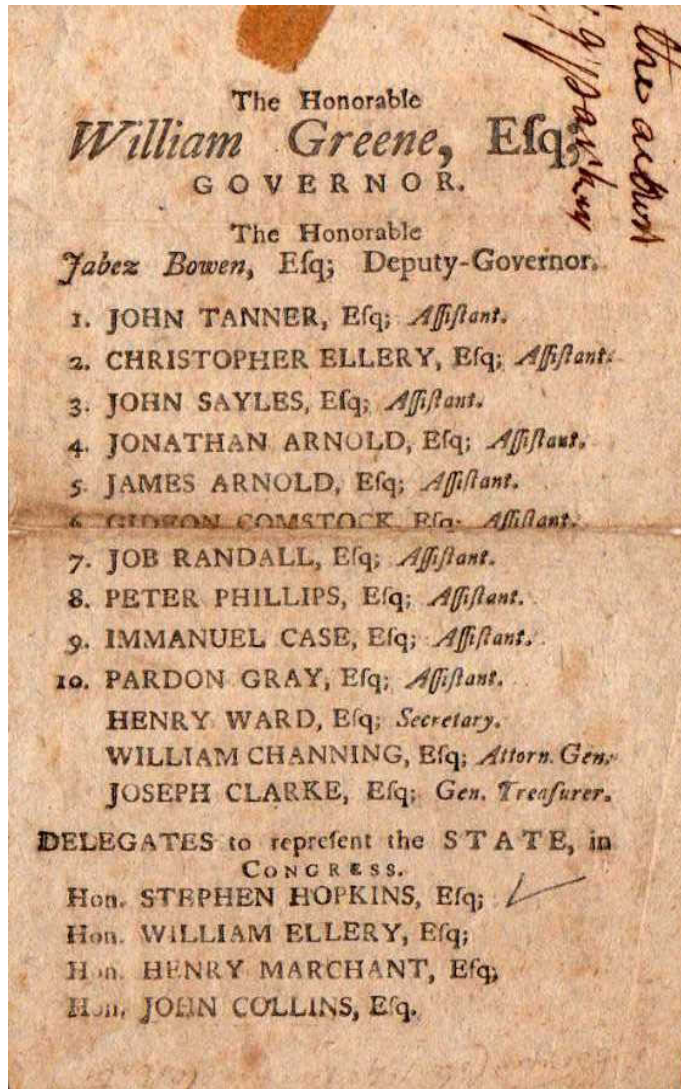 The Honorable
William Greene, Eſq;
GOVERNOR.
The Honorable
Jabez Bowen, Eſq; Deputy-Governor.
1. JOHN TANNER, Eſq; Aſſiſtant.
2. CHRISTOPHER ELLERY, Eſq; Aſſiſtant.
3. JOHN SAYLES, Eſq; Aſſiſtant.
4. JONATHAN ARNOLD, Eſq; Aſſiſtant.
5. JAMES ARNOLD, Eſq; Aſſiſtant.
6. GIDEON COMSTOCK, Eſq; Aſſiſtant.
7. JOB RANDALL, Eſq; Aſſiſtant.
8. PETER PHILLIPS, Eſq; Aſſiſtant.
9. IMMANUEL CASE, Eſq; Aſſiſtant.
10. PARDON GRAY, Eſq; Aſſiſtant.
HENRY WARD, Eſq; Secretary.
WILLIAM CHANNING, Eſq; Attorn. Gen.
JOSEPH CLARKE, Eſq; Gen. Treaſurer.
DELEGATES to repreſent the STATE, in
CONGRESS.
Hon. STEPHEN HOPKINS, Eſq;
Hon. WILLIAM ELLERY, Eſq;
Hon. HENRY MARCHANT, Eſq;
Hon. JOHN COLLINS, Eſq.
the